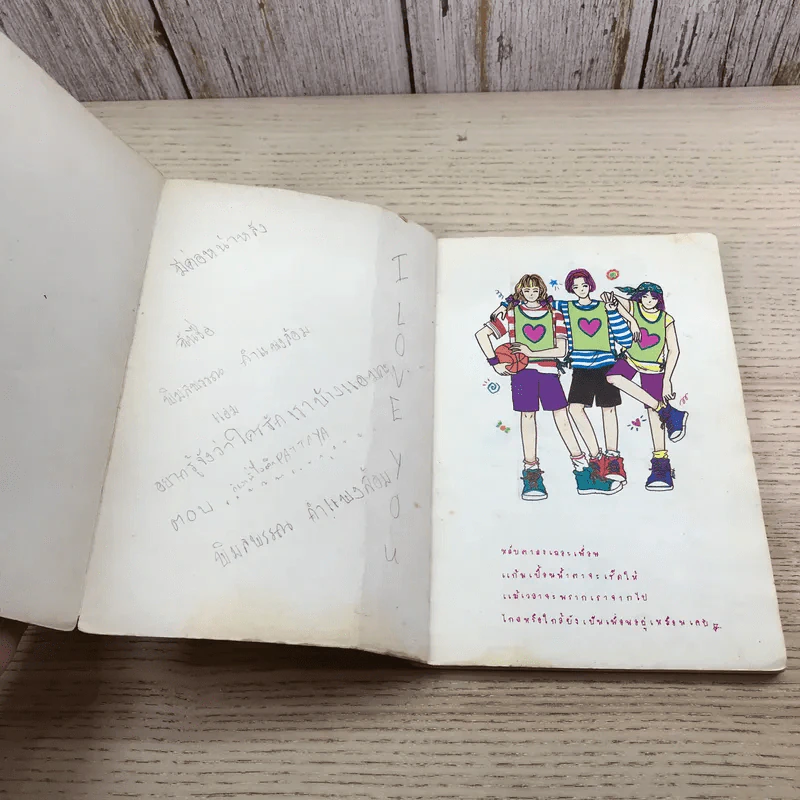 มีต่อหน้าหลัง
คือ
พิมลพรรณ กำแพงล้อม
ยอม
อยากรู้จังว่าใครรัก เราบ้างและนะ
ตอบ PATTIYA
พิมลพรรณ กำแพงล้อม
I LOVE YOU
หลับตาลงเถอะเพื่อน
แก้มเปื้อนน้ำตาจะเช็ดให้
แม้เวลาจะพรากเราจากไป
ไกลหรือใกล้ยังเป็นเพื่อนอยู่เหมือนเคย